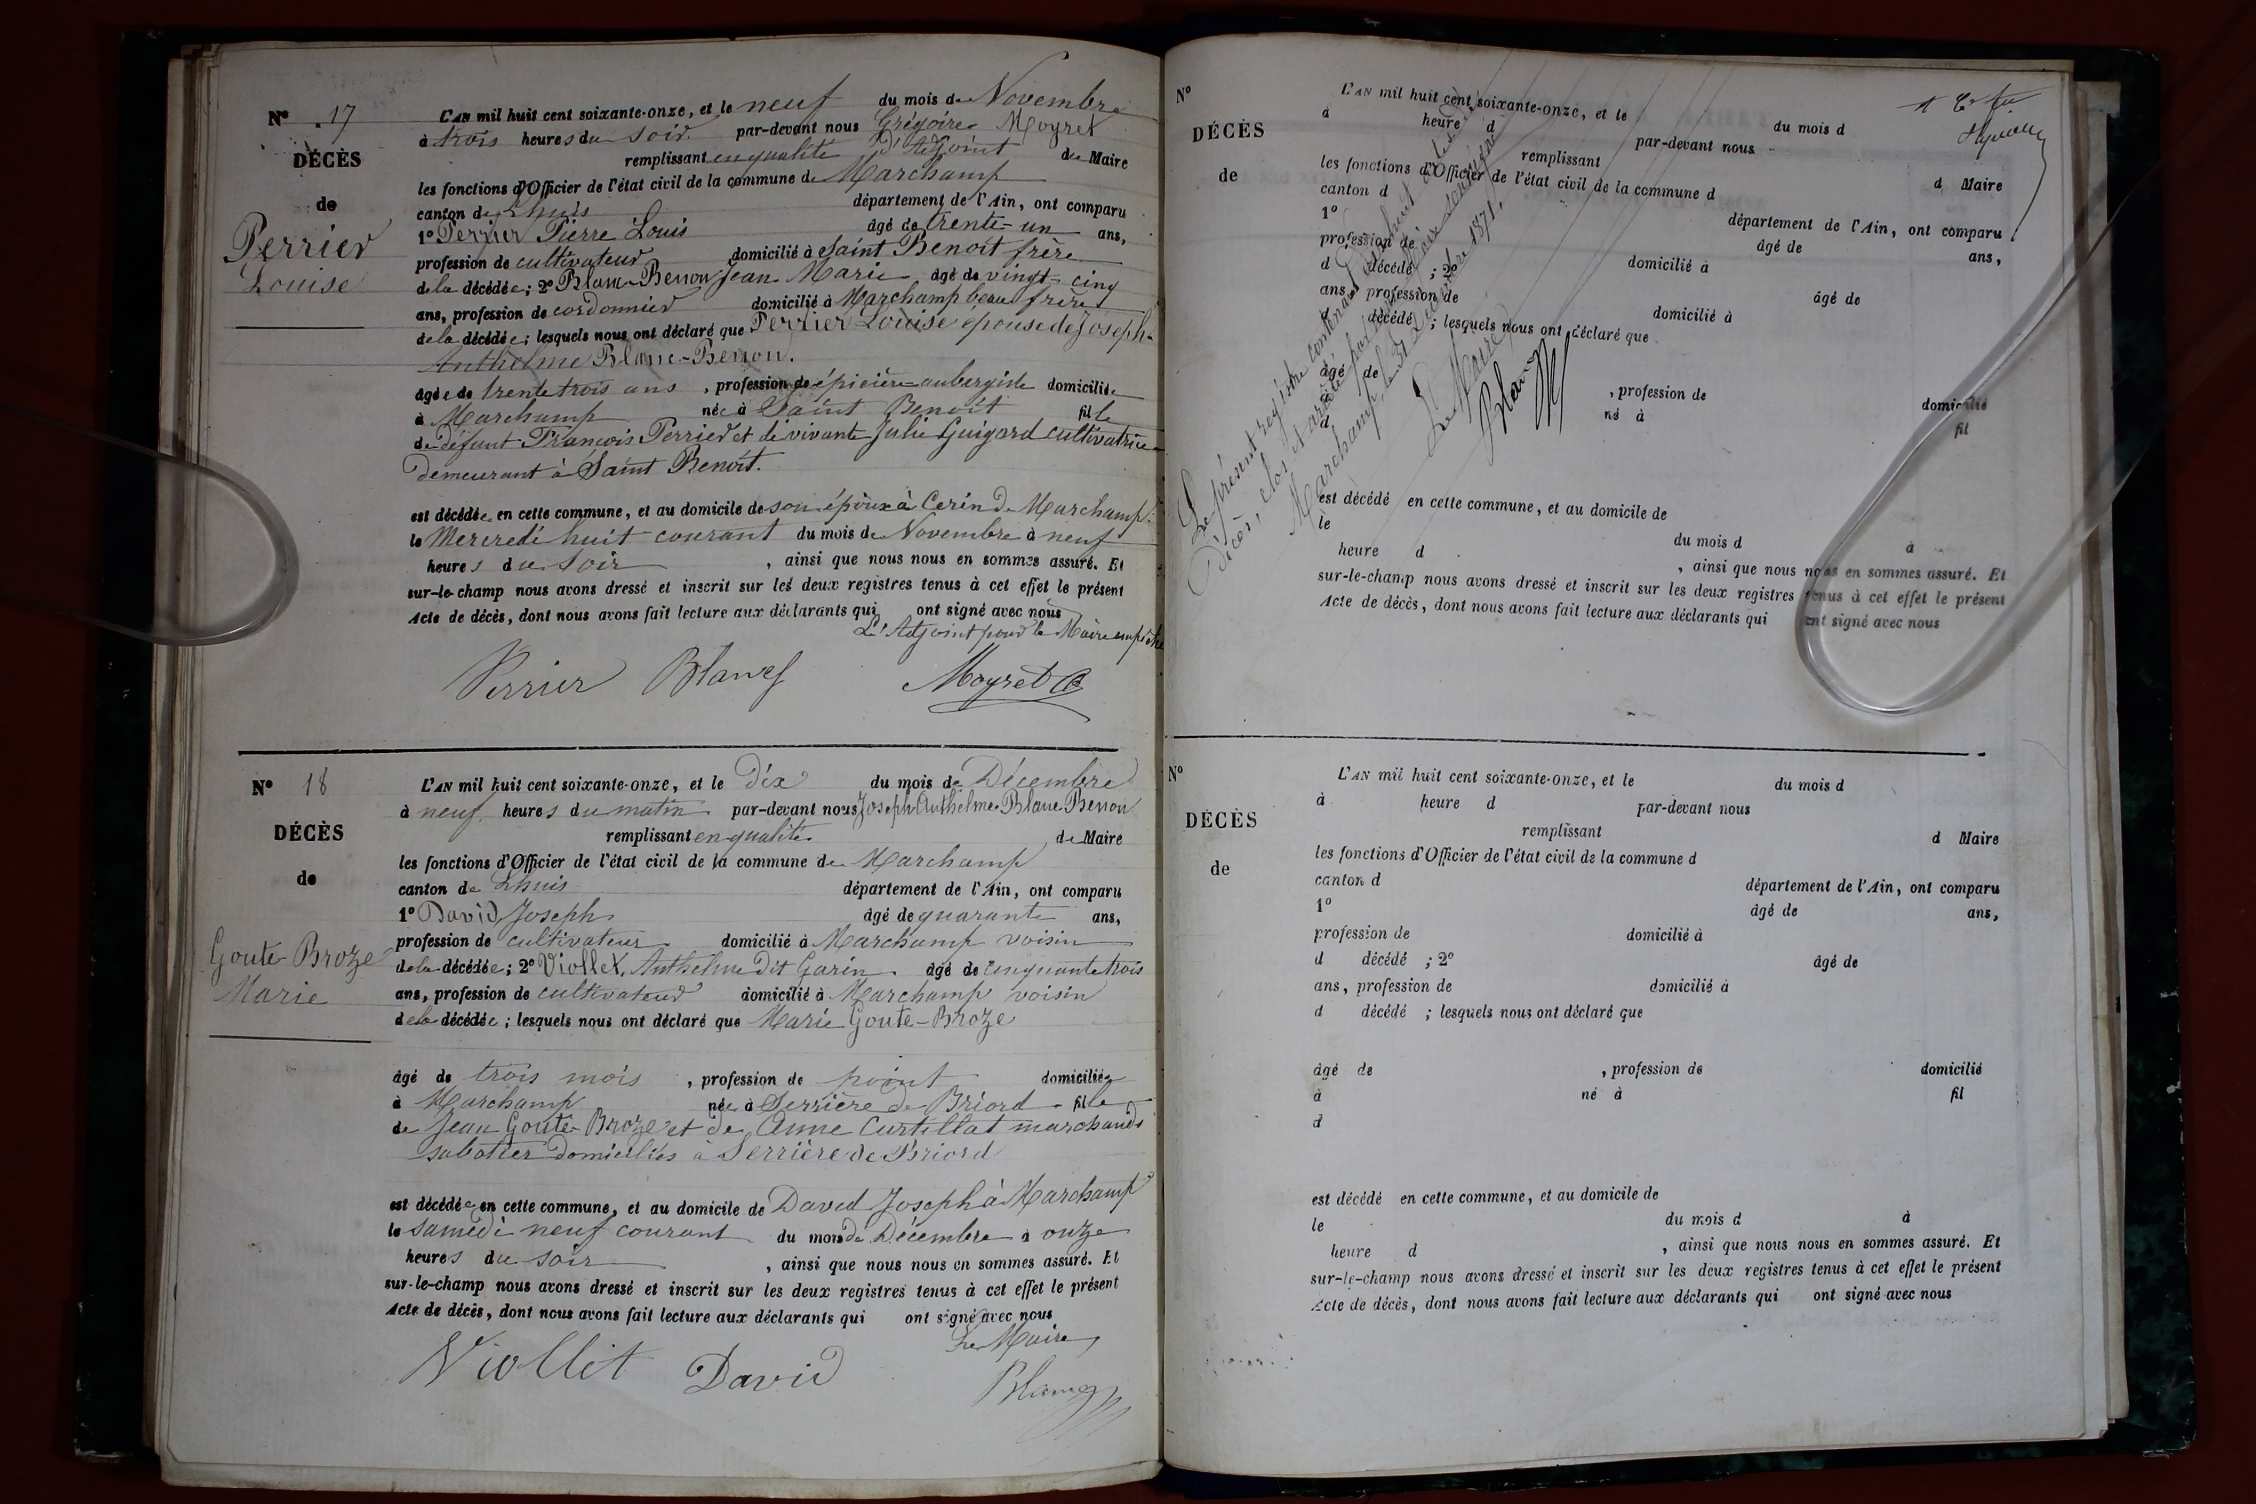 N° 17
DÉCÈS
de
Perrier
Louise
L'AN mil huit cent soixante-onze, et le neuf du mois de Novembre
à trois heures du soir par-devant nous Grégoire Moyret
remplissant en qualité d'Adjoint du Maire
les fonctions d'Officier de l'état civil de la commune de Marchamp
canton de Lhuis département de l'Ain, ont comparu
1° Perrier Pierre Louis âgé de trente-un ans,
profession de cultivateur domicilié à Saint Benoit frère
de la décédée; 2° Blanc-Benon Jean Marie âgé de vingt-cinq
ans, profession de cordonnier domicilié à Marchamp beau frère
de la décédée; lesquels nous ont déclaré que Perrier Louise épouse de Joseph-
Anthelme Blanc-Benon.
âgée de trente trois ans, profession de épicière-aubergiste domiciliée
à Marchamp née à Saint Benoit fille
de défunt François Perrier et de vivante Julie Guigard cultivatrice
demeurant à Saint Benoit.
est décédée en cette commune, et au domicile de son époux à Cerin de Marchamp
le Mercredi huit courant du mois de Novembre à neuf
heures du soir, ainsi que nous nous en sommes assuré. Et
sur-le-champ nous avons dressé et inscrit sur les deux registres tenus à cet effet le présent
Acte de décès, dont nous avons fait lecture aux déclarants qui ont signé avec nous
L'Adjoint pour le Maire empêché
Perrier Blanc Moyret G
N° 18
DÉCÈS
de
Goute-Broze
Marie
L'AN mil huit cent soixante-onze, et le Dix du mois de Décembre
à neuf heures du matin par-devant nous Joseph Anthelme Blanc Benon
remplissant en qualité de Maire
les fonctions d'Officier de l'état civil de la commune de Marchamp
canton de Lhuis département de l'Ain, ont comparu
1° David Joseph âgé de quarante ans,
profession de cultivateur domicilié à Marchamp voisin
de la décédée; 2° Viollet, Anthelme Dit Garin âgé de cinquante trois
ans, profession de cultivateur domicilié à Marchamp voisin
de la décédée; lesquels nous ont déclaré que Marie Goute-Broze
âgé de trois mois, profession de point domiciliée
à Marchamp née à Serrière de Briord fille
de Jean Goute-Broze et de Anne Curtillat marchands
sabotier domiciliés à Serrière de Briord
est décédée en cette commune, et au domicile de David Joseph à Marchamp
le samedi neuf courant du mois de Décembre à onze
heures du soir, ainsi que nous nous en sommes assuré. Et
sur-le-champ nous avons dressé et inscrit sur les deux registres tenus à cet effet le présent
Acte de décès, dont nous avons fait lecture aux déclarants qui ont signé avec nous
Le Maire
Viollet David Blanc
N°
DÉCÈS
de
L'AN mil huit cent soixante-onze, et le du mois d
à heure d par-devant nous
remplissant d Maire
les fonctions d'Officier de l'état civil de la commune d
canton d département de l'Ain, ont comparu
1° âgé de ans,
profession de domicilié à
d décédé ; 2° âgé de
ans, profession de domicilié à
d décédé ; lesquels nous ont déclaré que
âgé de , profession de domicilié
à né à fil
d
est décédé en cette commune, et au domicile de
le du mois d à
heure d , ainsi que nous nous en sommes assuré. Et
sur-le-champ nous avons dressé et inscrit sur les deux registres tenus à cet effet le présent
Acte de décès, dont nous avons fait lecture aux déclarants qui ont signé avec nous
Le présent registre contenant dix huit actes de
Décès, clos et arrêté par nous Maire soussigné
Marchamp, le 31 Décembre 1871.
Le Maire
Blanc
N°
DÉCÈS
de
L'AN mil huit cent soixante-onze, et le du mois d
à heure d par-devant nous
remplissant d Maire
les fonctions d'Officier de l'état civil de la commune d
canton d département de l'Ain, ont comparu
1° âgé de ans,
profession de domicilié à
d décédé ; 2° âgé de
ans, profession de domicilié à
d décédé ; lesquels nous ont déclaré que
âgé de , profession de domicilié
à né à fil
d
est décédé en cette commune, et au domicile de
le du mois d à
heure d , ainsi que nous nous en sommes assuré. Et
sur-le-champ nous avons dressé et inscrit sur les deux registres tenus à cet effet le présent
Acte de décès, dont nous avons fait lecture aux déclarants qui ont signé avec nous